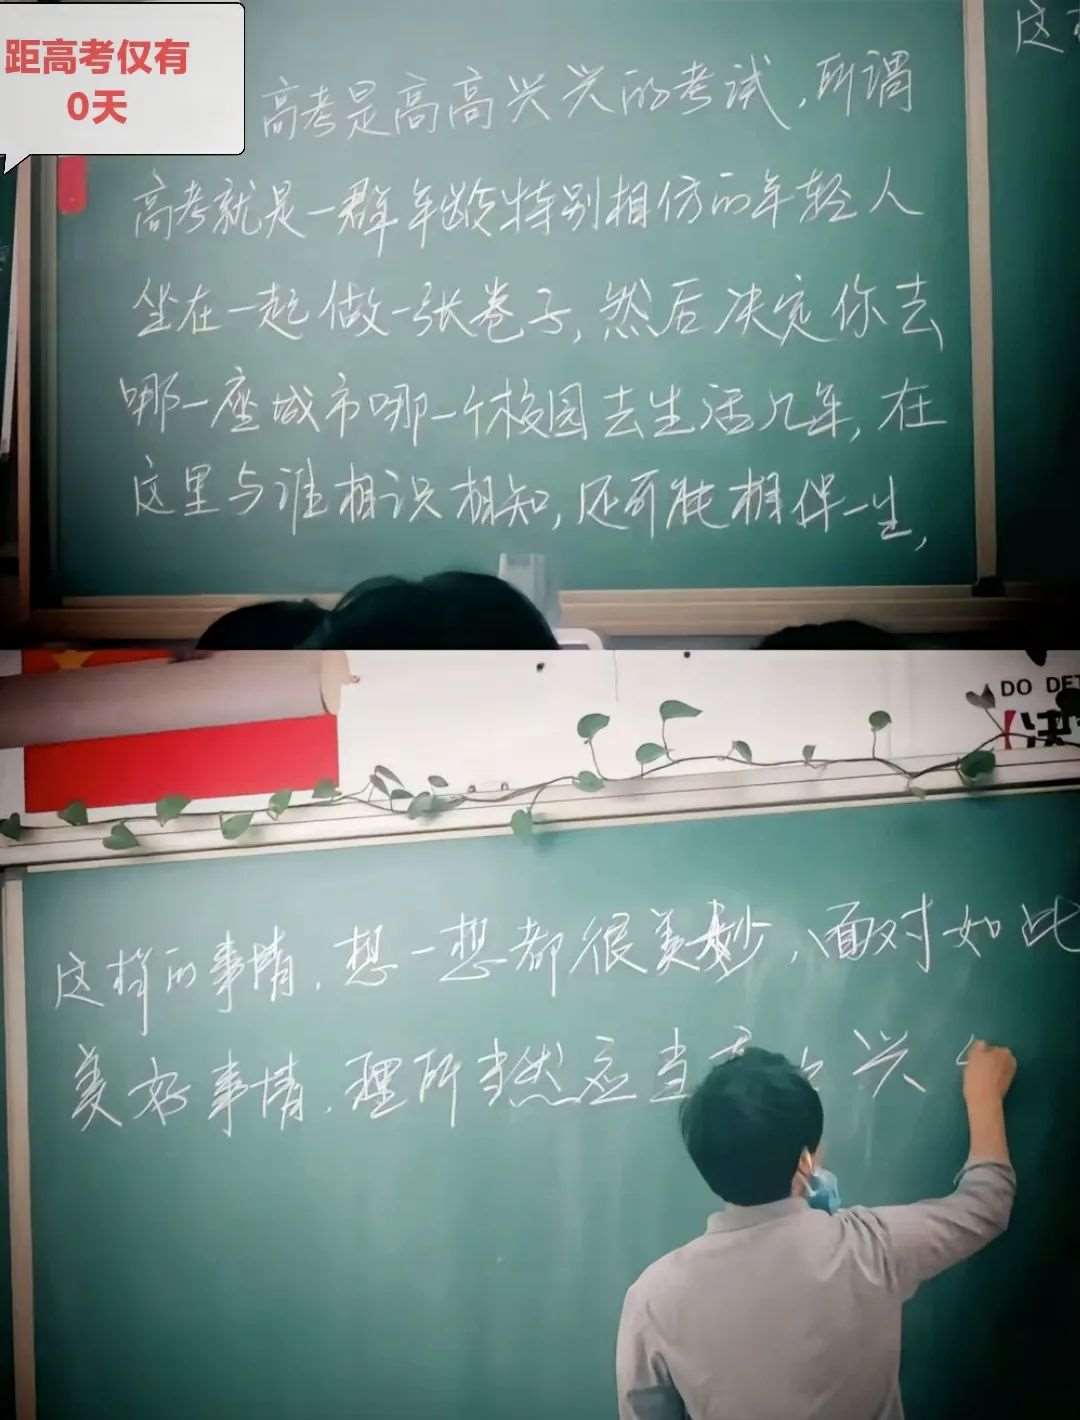 距高考仅有
0天
高考是高高兴兴的考试，所谓
高考就是一群年龄特别相仿的年轻人
坐在一起做一张卷子，然后决定你去
哪一座城市哪一个校园去生活几年，在
这里与谁相识相知，还可能相伴一生，
这
DO DET
这样的事情，想一想都很美妙，面对如此
美好事情，理所当然应当高 兴